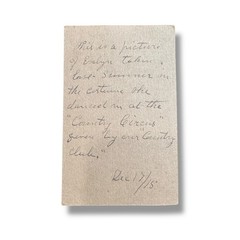 This is a picture
of Evelyn taken
last Summer in
the costume she
danced in at the
"Country Circus"
given by our Country
Club."
Dec 17/15